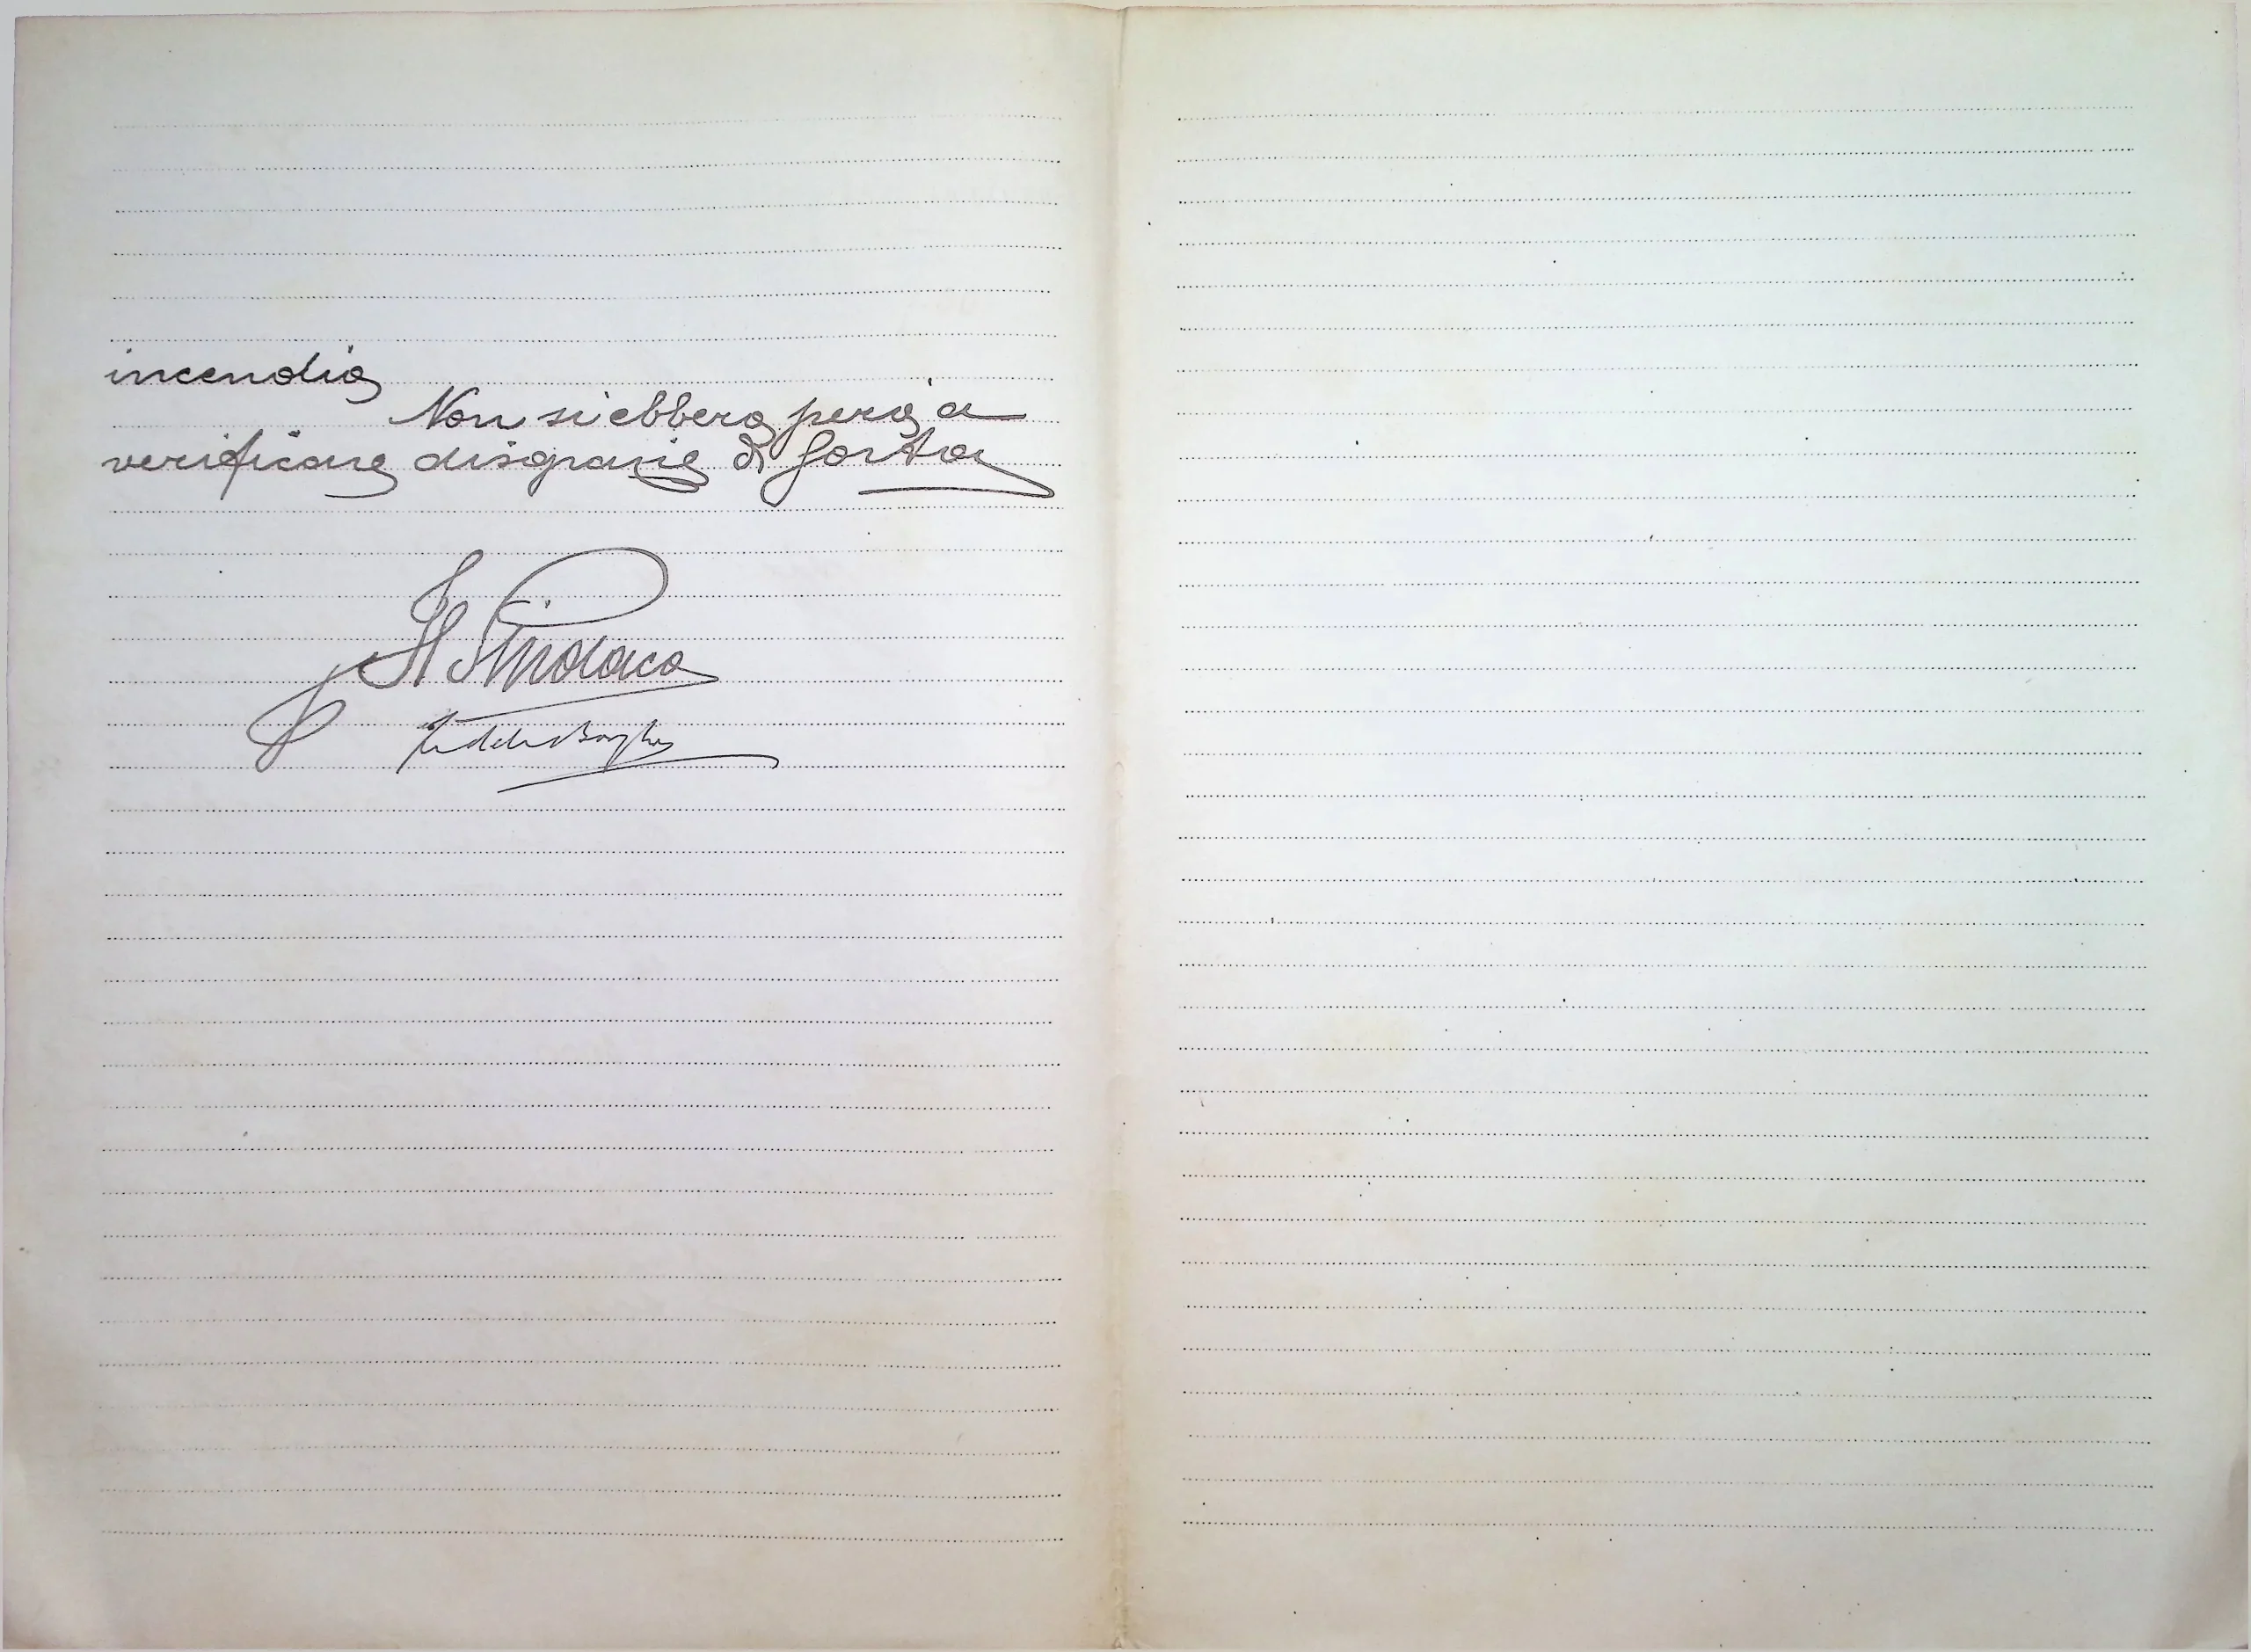 incendio
Non si ebbero però a
verificare disgrazie di sorta
Il Sindaco